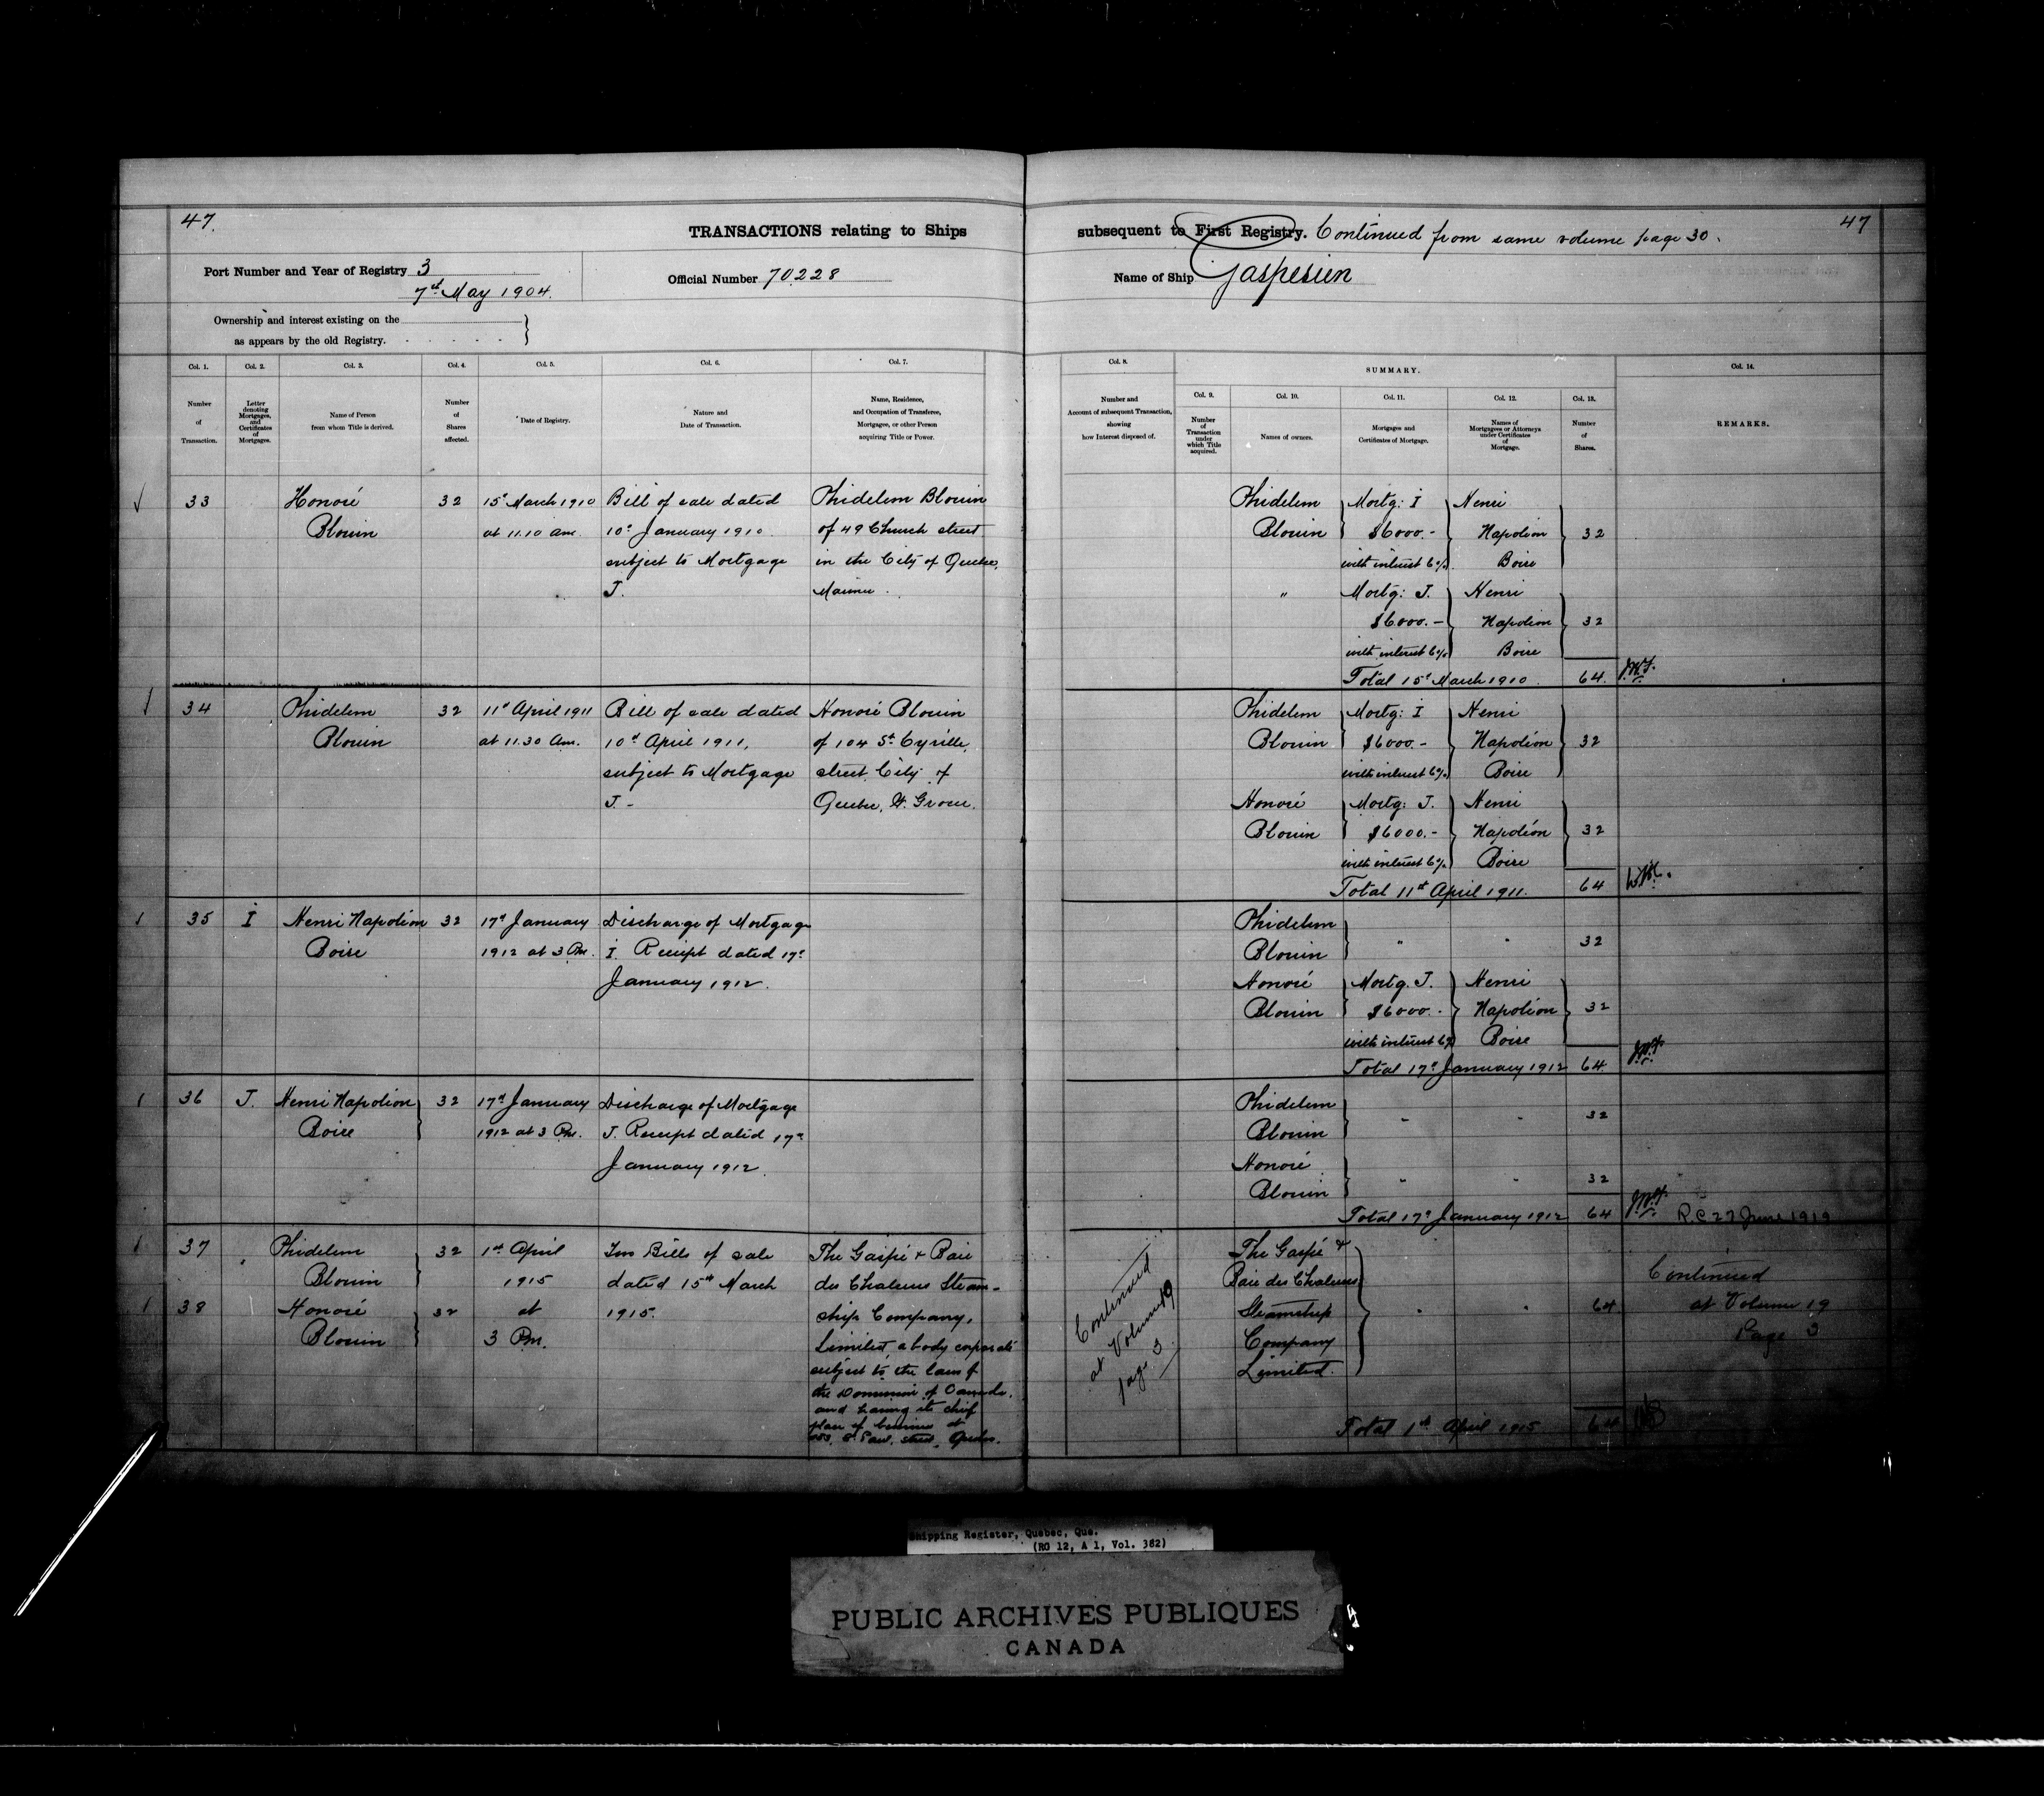 47.
TRANSACTIONS relating to Ships
subsequent to First Registry. Continued from same volume page 30.
47
Port Number and Year of Registry 3
7th May 1904.
Official Number 70,228
Name of Ship Gaspesien
Ownership and interest existing on the
as appears by the old Registry.
Col. 1.
Number
of
Transaction.
Col. 2.
Letter
denoting
Mortgages,
and
Certificates
of
Mortgages.
Col. 3.
Name of Person
from whom Title is derived.
Col. 4.
Number
of
Shares
affected.
Col. 5.
Date of Registry.
Col. 6.
Nature and
Date of Transaction.
Col. 7.
Name, Residence,
and Occupation of Transferee,
Mortgagee, or other Person
acquiring Title or Power.
Col. 8.
Number and
Account of subsequent Transaction,
showing
how Interest disposed of.
SUMMARY.
Col. 9.
Number
of
Transaction
under
which Title
acquired.
Col. 10.
Names of owners.
Col. 11.
Mortgages and
Certificates of Mortgage.
Col. 12.
Names of
Mortgagees or Attorneys
under Certificates
of
Mortgage.
Col. 13.
Number
of
Shares.
Col. 14.
REMARKS.
33
Honoré
Blouin
32
15th March 1910
at 11.10 am.
Bill of sale dated
10th January 1910
subject to Mortgage
J.
Phidelem Blouin
of 49 Church street
in the City of Quebec,
Mariner.
Phidelem
Blouin
Mortg: I
$6000.-
with interest 6%
Henri
Napoléon
Boire
32
"
Mortg: J.
$6000.-
with interest 6%
Henri
Napoléon
Boire
32
Total 15th March 1910
64.
34
Phidelem
Blouin
32
11th April 1911
at 11.30 Am.
Bill of sale dated
10th April 1911,
subject to Mortgage
J -
Honoré Blouin
of 104 St. Cyrille,
street, City of
Quebec, W. Grocer.
Phidelem
Blouin
Mortg: I
$6000.-
with interest 6%
Henri
Napoléon
Boire
32
Honoré
Blouin
Mortg: J.
$6000.-
with interest 6%
Henri
Napoléon
Boire
32
Total 11th April 1911.
64
35
I
Henri Napoléon
Boire
32
17th January
1912 at 3 Pm.
Discharge of Mortgage
I. Receipt dated 17th
January 1912.
Phidelem
Blouin
"
"
32
Honoré
Blouin
Mortg. J.
$6000.-
with interest 6%
Henri
Napoléon
Boire
32
Total 17th January 1912
64
36
J.
Henri Napoléon
Boire
32
17th January
1912 at 3 Pm.
Discharge of Mortgage
J. Receipt dated 17th
January 1912.
Phidelem
Blouin
"
"
32
Honoré
Blouin
"
"
32
Total 17th January 1912
64
R.C 27 June 1919
37
Phidelem
Blouin
32
38
Honoré
Blouin
32
1st April
1915
at
3 Pm.
Two Bills of sale
dated 15th March
1915.
The Gaspé & Baie
des Chaleurs Steam-
ship Company,
Limited, a body corporate
subject to the laws of
the Dominion of Canada,
and having its chief
place of business at
St. Paul, street, Quebec.
Continued
at Volume 19
page 3.
The Gaspé &
Baie des Chaleurs
Steamship
Company
Limited.
"
"
64
Total 1st April 1915
64
Continued
at Volume 19
Page 3
Shipping Register, Quebec, Que.
(RG 12, A 1, Vol. 382)
PUBLIC ARCHIVES PUBLIQUES
CANADA